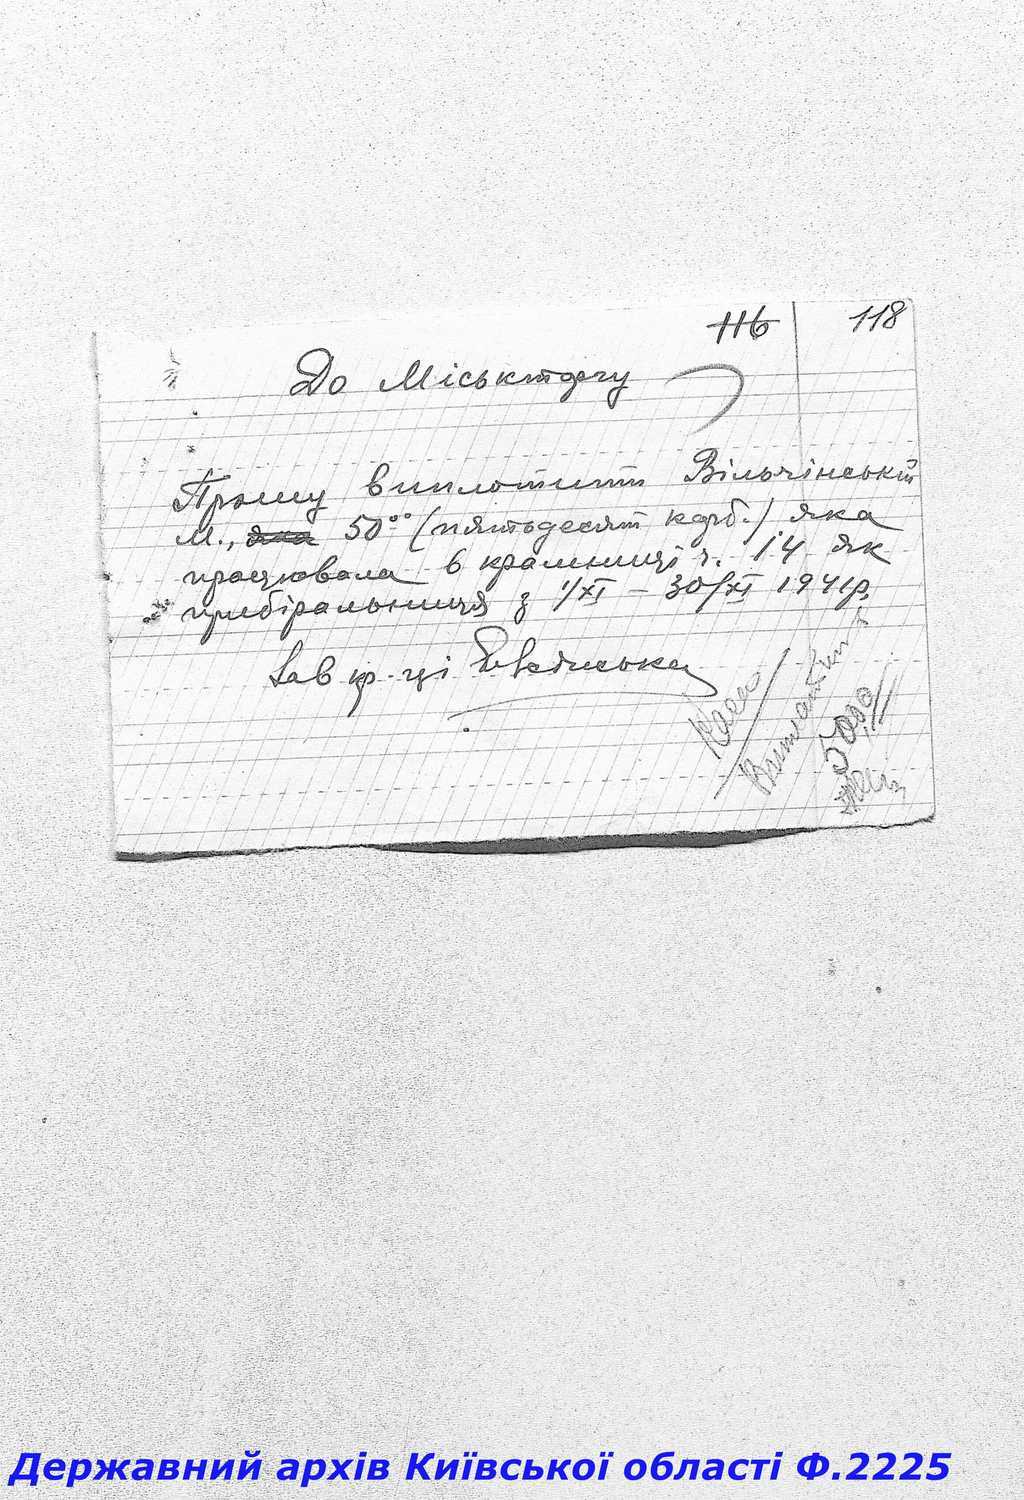 116 118
До Міськторгу
Прошу виплотити Вільчінській
М., яка 50°° (пятьдесят карб.) яка
працювала в крамниці ч. 14 як
прибіральниця з 1/XI – 30/XI 1941р.
Зав кр-ці
Виплатіт
5000
Державний архів Київської області Ф.2225